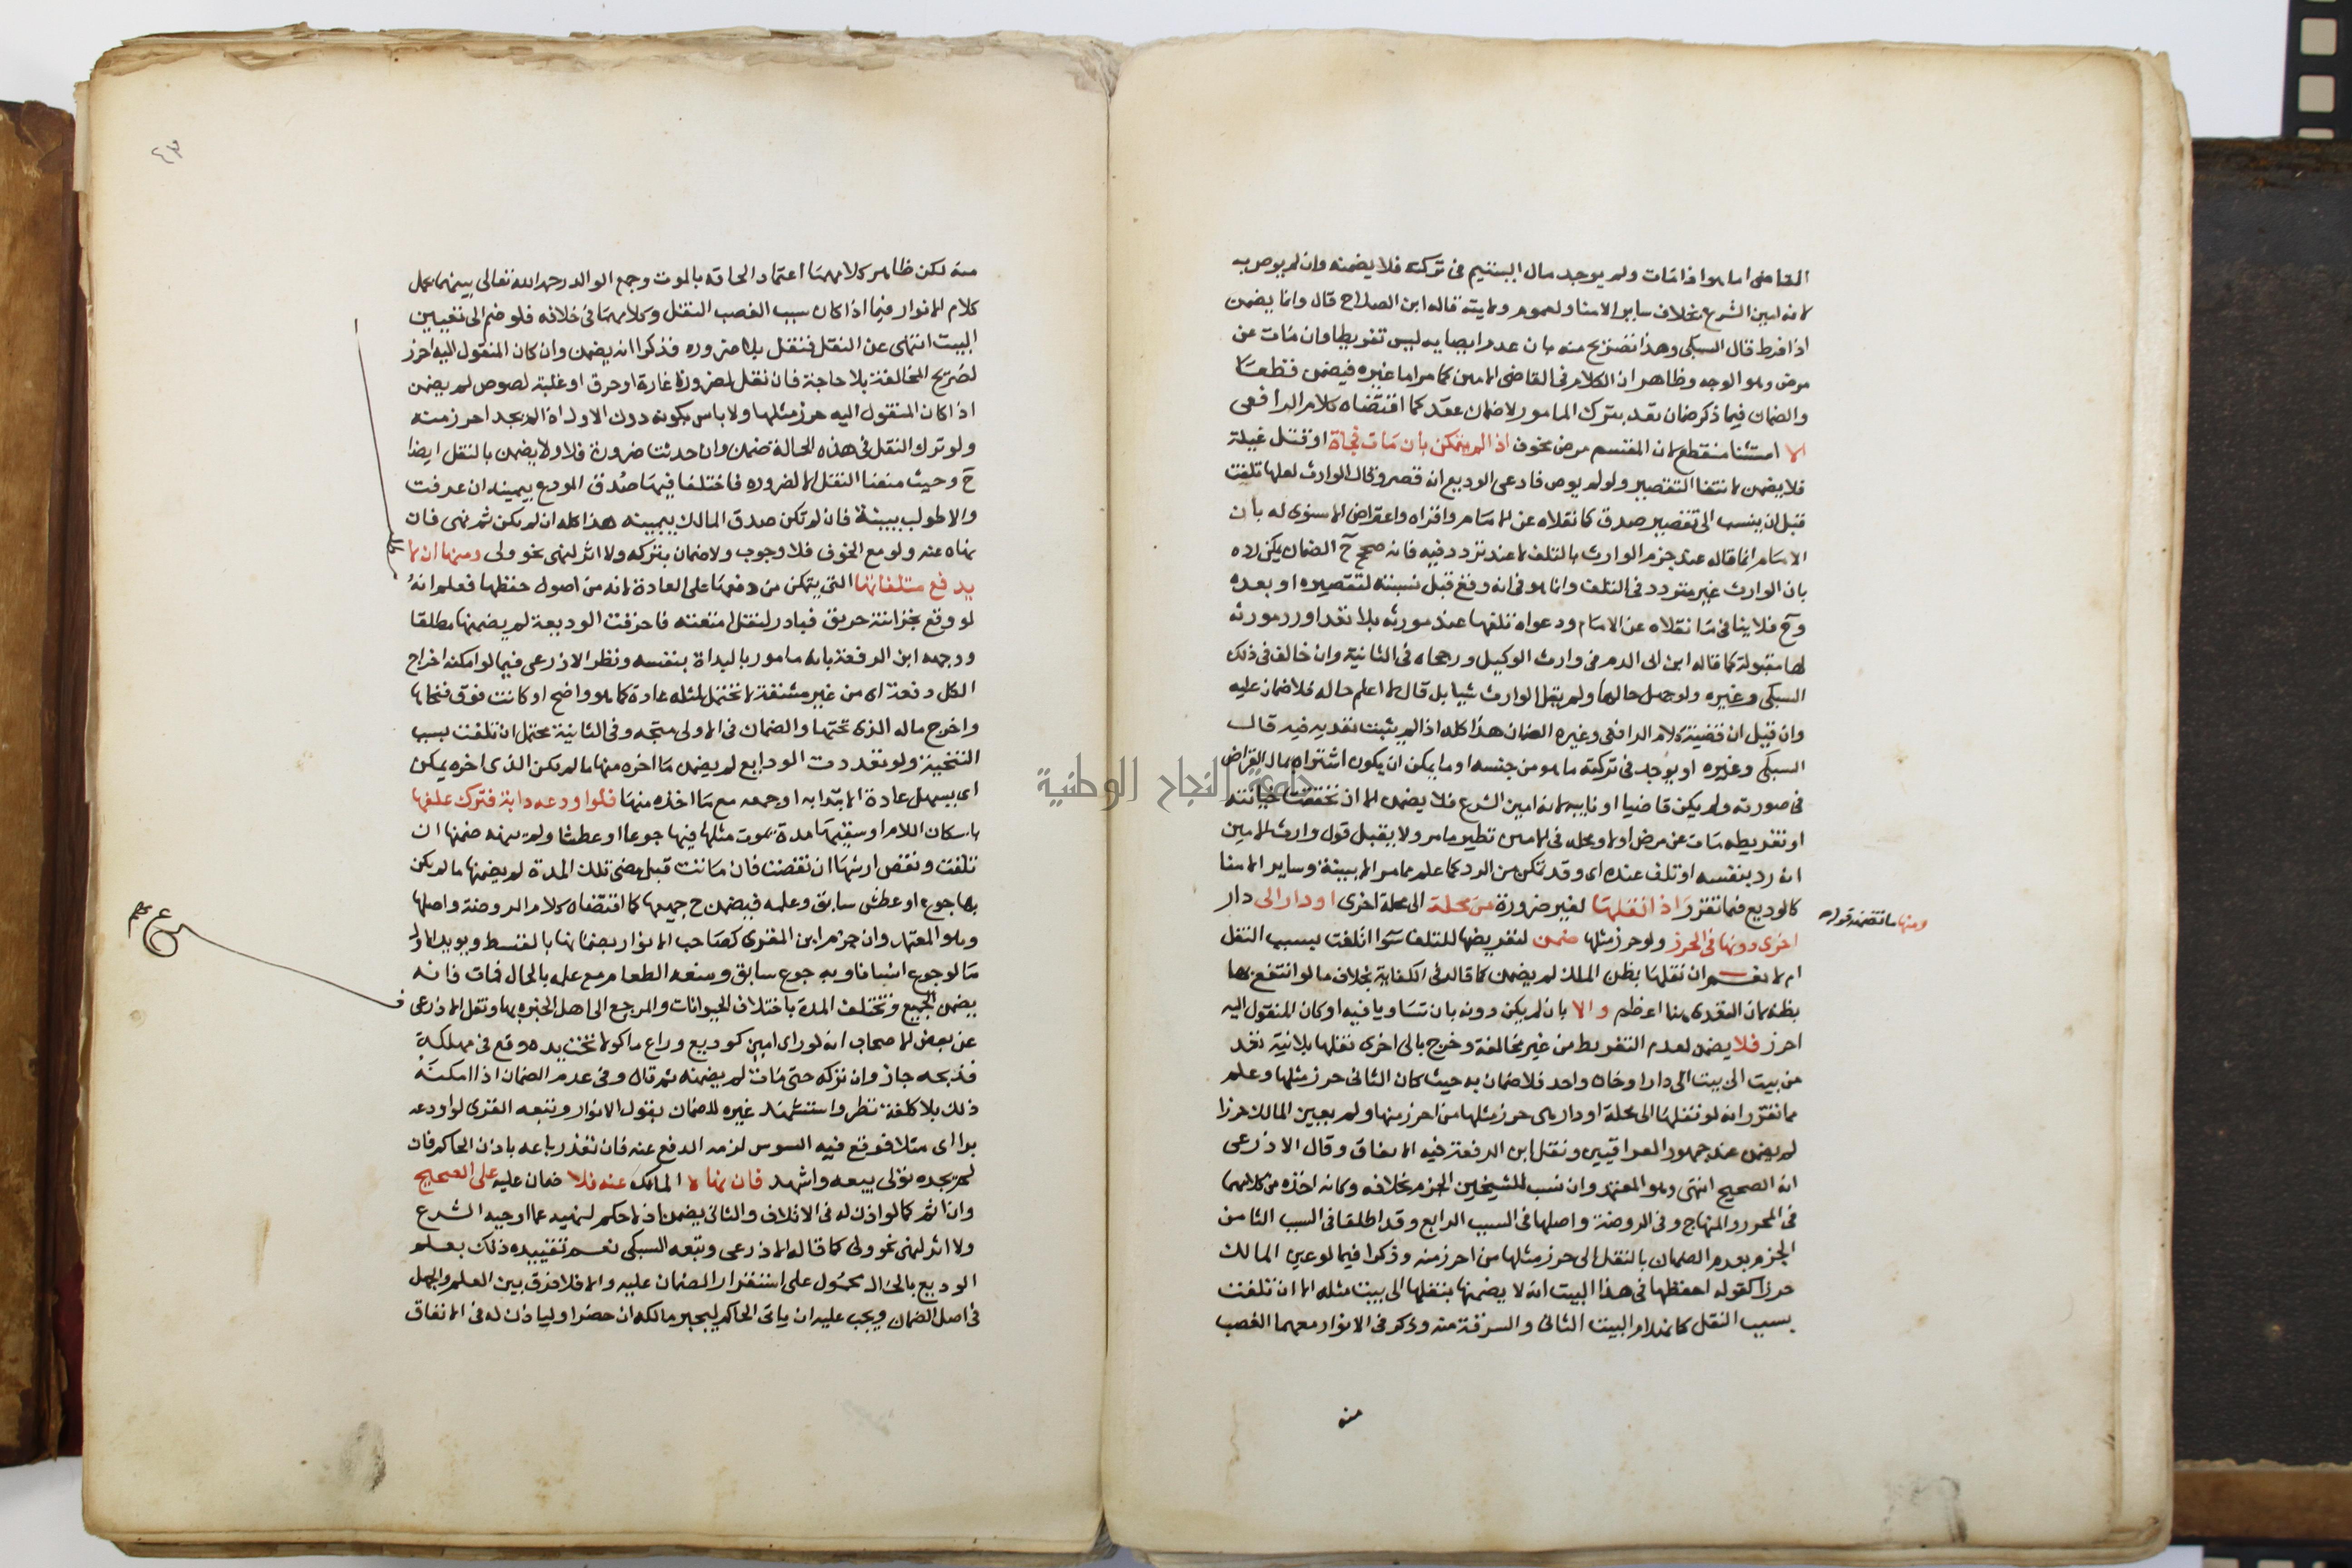 القاضى اما هو اذا مات ولم يوجد مال اليتيم فى تركته فلا يضمنه وان لم يوص به
لانه امين الشرع بخلاف ساير الامنا ولعموم ولايته قاله ابن الصلاح قال وانما يضمن
اذا فرط قال السبكى وهذا تصريح منه بان عدم ايصايه ليس تفريطا وان مات عن
مرض وهو الوجه وظاهر ان الكلام فى القاضى الامين كما مر اما غيره فيضمن قطعا
والضمان فيما ذكر ضمان تعد بترك المامور لا ضمان عقد كما اقتضاه كلام الرافعى
الا استثنا منقطع لان المقسم مرض مخوف اذا لم يتمكن بان مات فجاة او قتل غيلة
فلا يضمن لانتفا التقصير ولو لم يوص فادعى الوديع انه قصر وقال الوارث لعلها تلفت
قبل ان ينسب الى تقصير صدق كما نقلاه عن الامام واقراه واعتراض الاسنوى له بان
الامام انما قاله عند جزم الوارث بالتلف لا عند تردده فيه فانه صحح ح الضمان يمكن رده
بان الوارث غير متردد فى التلف وانما هو فى انه وقع قبل نسبته لتقصيره او بعده
وح فلا ينافى ما نقلاه عن الامام ودعواه تلفها عند مورثه بلا تعد او رد مورثه
لها مقبولة كما قاله ابن ابى الدم فى وارث الوكيل ورجحاه فى الثانية وان خالف فى ذلك
السبكى وغيره ولو جهل حالها ولم يقل الوارث شيا بل قال لا اعلم حاله فلا ضمان عليه
وان قيل ان قضية كلام الرافعى وغيره الضمان هذا كله اذا لم يثبت تعديه فيه قال
السبكى وغيره او يوجد فى تركته ما هو من جنسه او ما يمكن ان يكون اشتراه بمال القراض
فى صورته ولم يكن قاضيا او نايبه لانه امين الشرع فلا يضمن الا ان تحققت خيانته
او تفريطه مات عن مرض اولا ومحله فى الامين نظير ما مر ولا يقبل قول وارث الامين
انه رد بنفسه او تلف عنده اى وقد تمكن من الرد كما علم مما مر الا ببينة وساير الامنا
كالوديع فيما تقرر اذا نقلها لغير ضرورة من محلة الى محلة اخرى او دار الى دار
ومنها ما تضمنه قوله
اخرى دونها فى الحرز ولو حرز مثلها ضمن لتعريضها للتلف سوا اتلفت بسبب النقل
ام لا نعم ان نقلها بظن الملك لم يضمن كما قاله فى الكفاية بخلاف ما لو انتفع بها
بظنه لان التعدى هنا اعظم والا بان لم يكن دونه بان تساويا فيه او كان المنقول اليه
احرز فلا يضمن لعدم التفريط من غير مخالفة وخرج بالى اخرى نقلها بلا نية تعد
من بيت الى بيت فى دار او خان واحد فلا ضمان به حيث كان الثانى حرز مثلها وعلم
مما تقرر انه لو نقلها الى محلة او دار هى حرز مثلها من احرز منها ولم يعين المالك حرزا
لم يضمن عند جمهور العراقيين ونقل ابن الرفعة فيه الاتفاق وقال الاذرعى
انه الصحيح انتهى وهو المعتمد وان نسب للشيخين الجزم بخلافه وكانه اخذه من كلامهما
فى المحرر والمنهاج وفى الروضة واصلها فى السبب الرابع وقد اطلقا فى السبب الثامن
الجزم بعدم الضمان بالنقل الى حرز مثلها من احرز منه وذكرا فيما لو عين المالك
حرزا كقوله احفظها فى هذا البيت انه لا يضمنها بنقلها الى بيت مثله الا ان تلفت
بسبب النقل كانهدام البيت الثانى والسرقة منه وذكر فى الانوار معهما الغصب
منه
٤٣
منه لكن ظاهر كلامهما اعتماد الحاقه بالموت وجمع الوالد رحمه الله تعالى بينهما بحمل
كلام الانوار فيما اذا كان سبب الغصب النقل وكلامهما فى خلافه فلو ضم الى تعيين
البيت النهى عن النقل فنقل بلا ضرورة فذكرا انه يضمن وان كان المنقول اليه احرز
لصريح المخالفة بلا حاجة فان نقل لضرورة غارة او حرق او غلبة لصوص لم يضمن
اذا كان المنقول اليه حرز مثلها ولا باس بكونه دون الاول اذا لم يجد احرز منه
ولو ترك النقل فى هذه الحالة ضمن وان حدثت ضرورة فلا ولا يضمن بالنقل ايضا
ح وحيث منعنا النقل الا لضرورة فاختلفا فيها صدق الوديع بيمينه ان عرفت
والا طولب ببينة فان لم تكن صدق المالك بيمينه هذا كله ان لم يكن ثم نهى فان
نهاه عنه ولو مع الخوف فلا وجوب ولا ضمان بتركه ولا اثر لنهى نحو ولى ومنها ان لا
يدفع متلفاتها التى يتمكن من دفعها على العادة لانه من اصول حفظها فعلم انه
لو وقع بخزانته حريق فبادر لنقل امتعته فاحرقت الوديعة لم يضمنها مطلقا
ووجهه ابن الرفعة بانه مامور بالبداة بنفسه ونظر الاذرعى فيما لو امكنه اخراج
الكل دفعة اى من غير مشقة لا تحتمل لمثله عادة كما هو واضح او كانت فوق فنحاها
واخرج ماله الذى تحتها والضمان فى الاولى متجه وفى الثانية محتمل ان تلفت بسبب
التنحية ولو تعددت الودايع لم يضمن ما اخره منها ما لم يكن الذى اخره يمكن
اى يسهل عادة الابتدا به او جمعه مع ما اخذه منها فلو اودعه دابة فترك علفها
باسكان اللام او سقيها مدة يموت مثلها فيها جوعا او عطشا ولم ينهه ضمنها ان
تلفت ونقص ارشها ان نقصت فان ماتت قبل مضى تلك المدة لم يضمنها ما لم يكن
بها جوع او عطش سابق وعلمه فيضمن ح جميعها كما اقتضاه كلام الروضة واصلها
وهو المعتمد وان جزم ابن المقرى كصاحب الانوار بضمانها بالقسط ويويد الاول
ما لو جوع انسانا وبه جوع سابق ومنعه الطعام مع علمه بالحال فمات فانه
يضمن الجميع وتختلف المدة باختلاف الحيوانات والمرجع الى اهل الخبرة بها ونقل الاذرعى
فرع مهم
عن بعض الاصحاب انه لو راى امين كوديع وراع ماكولا تحت يده وقع فى مهلكة
فذبحه جاز وان تركه حتى مات لم يضمنه ثم قال وفى عدم الضمان اذا امكنه
ذلك بلا كلفة نظر واستشهد غيره للضمان بقول الانوار وتبعه الغزى لو اودعه
برا اى مثلا فوقع فيه السوس لزمه الدفع عنه فان تعذر باعه باذن الحاكم فان
لم يجده تولى بيعه واشهد فان نهاه المالك عنه فلا ضمان عليه على الصحيح
وان اثم كما لو اذن له فى الاتلاف والثانى يضمن اذ لا حكم لنهيه عما اوجبه الشرع
ولا اثر لنهى نحو ولى كما قاله الاذرعى وتبعه السبكى نعم تقييده ذلك بعلم
الوديع بالحال محمول على استقرار الضمان عليه والا فلا فرق بين العلم والجهل
فى اصل الضمان ويجب عليه ان ياتى الحاكم ليجبر مالكه ان حضر او لياذن له فى الانفاق
جامعة النجاح الوطنية